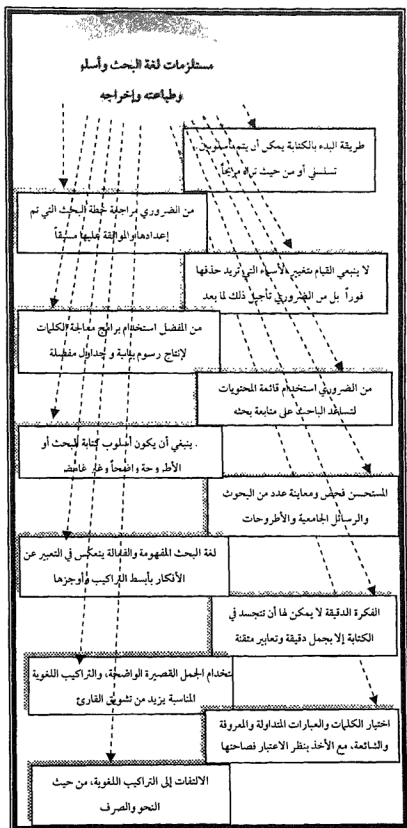 مستلزمات لغة البحث وأسلو
وطباعته وإخراجه
طريقة البدء بالكتابة يمكن أن يتم بأسلوبين
تسلسلي أو من حيث تراه مريحاً
من الضروري مراجعة خطة البحث التي تم
إعدادها والموافقة عليها مسبقاً
لا ينبغي القيام بتغيير الأسماء التي تريد حذفها
فوراً بل من الضروري تأجيل ذلك لما بعد
من المفضل استخدام برامج معالجة الكلمات
لإنتاج رسوم بيانية وجداول مفضلة
من الضروري استخدام قائمة المحتويات
لتساعد الباحث على متابعة بحثه
. ينبغي أن يكون أسلوب كتابة البحث أو
الأطروحة واضحاً وغير غامض
المستحسن فحص ومعاينة عدد من البحوث
والرسائل الجامعية والأطروحات
لغة البحث المفهومة والفعالة ينعكس في التعبير عن
الأفكار بأبسط التراكيب وأوجزها
الفكرة الدقيقة لا يمكن لها أن تتجسد في
الكتابة إلا بجمل دقيقة وتعابير متقنة
ستخدام الجمل القصيرة الواضحة، والتراكيب اللغوية
المناسبة يزيد من تشويق القارئ
اختيار الكلمات والعبارات المتداولة والمعروفة
والشائعة، مع الأخذ بنظر الاعتبار فصاحتها
الالتفات إلى التراكيب اللغوية، من حيث
النحو والصرف